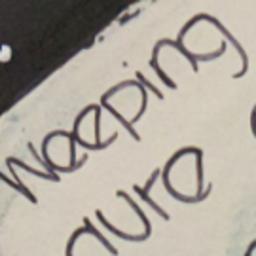 weeping
aure